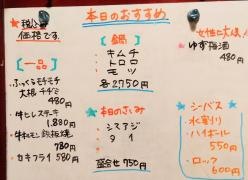 本日のおすすめ
★税込
価格です
【一品】
・ふっくらモチモチ
大根チヂミ
480円
・牛ヒレステーキ
1,880円
・牛ホルモン鉄板焼
780円
・カキフライ 580円
【鍋】
・キムチ
・トロロ
・モツ
各2750円
★本日のさしみ
・シマアジ
・タイ
盛合せ750円
女性に大人気
ゆず梅酒
480円
★シーバス★
水割り
ハイボール
550円
ロック
600円